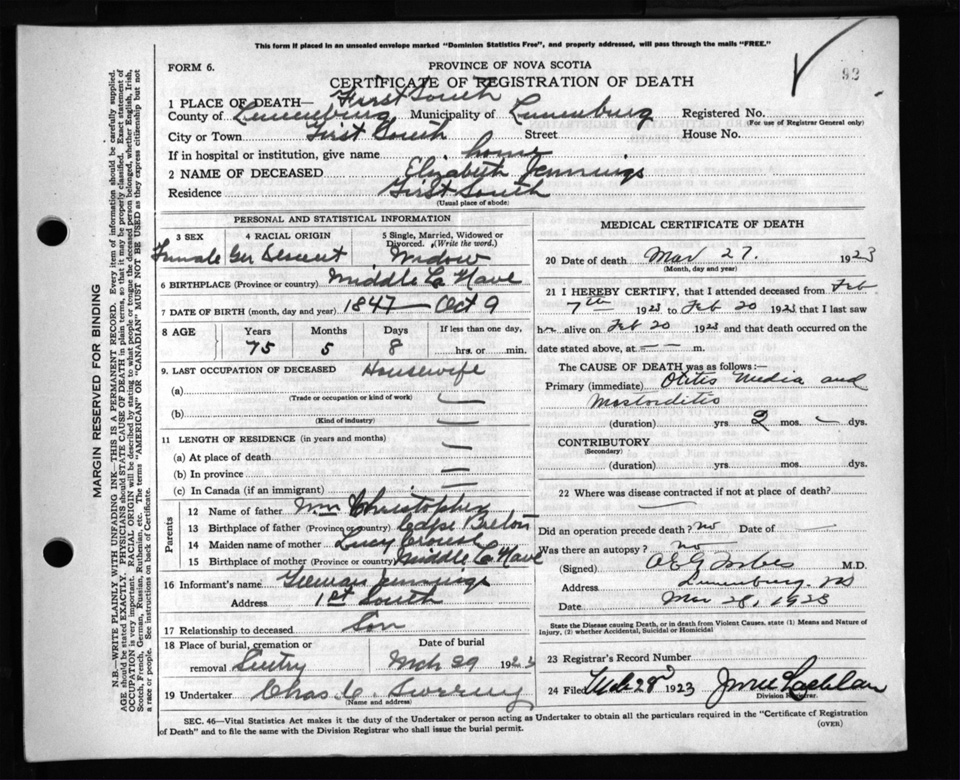 This form if placed in an unsealed envelope marked "Dominion Statistics Free", and properly addressed, will pass through the mails "FREE."
FORM 6.
PROVINCE OF NOVA SCOTIA
CERTIFICATE OF REGISTRATION OF DEATH
92
1 PLACE OF DEATH— First South
County of Lunenburg Municipality of Lunenburg Registered No.
(For use of Registrar General only)
City or Town First South Street House No.
If in hospital or institution, give name home
2 NAME OF DECEASED Elizabeth Jennings
Residence First South
(Usual place of abode)
PERSONAL AND STATISTICAL INFORMATION
3 SEX 4 RACIAL ORIGIN 5 Single, Married, Widowed or Divorced. (Write the word.)
Female Ger Descent Widow
6 BIRTHPLACE (Province or country) Middle La Have
7 DATE OF BIRTH (month, day and year) 1847 — Oct 9
8 AGE Years Months Days If less than one day,
75 5 8 hrs. or min.
9. LAST OCCUPATION OF DECEASED Housewife
(a)
(Trade or occupation or kind of work)
(b)
(Kind of industry)
11 LENGTH OF RESIDENCE (in years and months)
(a) At place of death
(b) In province
(c) In Canada (if an immigrant)
Parents
12 Name of father Wm Christopher
13 Birthplace of father (Province or country) Cape Breton
14 Maiden name of mother Lucy Crouse
15 Birthplace of mother (Province or country) Middle La Have
16 Informant's name Jennings
Address 1st South
17 Relationship to deceased Son
18 Place of burial, cremation or removal
Date of burial
Mch 29 1923
19 Undertaker Chas
(Name and address)
MEDICAL CERTIFICATE OF DEATH
20 Date of death Mar 27. 1923
(Month, day and year)
21 I HEREBY CERTIFY, that I attended deceased from Feb
7th 1923 to Feb 20 1923 that I last saw
her alive on Feb 20 1923 and that death occurred on the
date stated above, at — — m.
The CAUSE OF DEATH was as follows:—
Primary (immediate) Otitis Media and
Mastoiditis
(duration) yrs 2 mos. — dys.
CONTRIBUTORY
(Secondary)
(duration) yrs. mos. dys.
22 Where was disease contracted if not at place of death?
Did an operation precede death? no Date of —
Was there an autopsy? no
(Signed) M.D.
Address Lunenburg. NS
Date Mar 28, 1923
State the Disease causing Death, or in death from Violent Causes, state (1) Means and Nature of
Injury, (2) whether Accidental, Suicidal or Homicidal
23 Registrar's Record Number
24 Filed Mch 28 1923
Division Registrar.
SEC. 46—Vital Statistics Act makes it the duty of the Undertaker or person acting as Undertaker to obtain all the particulars required in the "Certificate of Registration
of Death" and to file the same with the Division Registrar who shall issue the burial permit.
(OVER)
MARGIN RESERVED FOR BINDING
N.B.—WRITE PLAINLY WITH UNFADING INK—THIS IS A PERMANENT RECORD. Every item of information should be carefully supplied.
AGE should be stated EXACTLY. PHYSICIANS should STATE CAUSE OF DEATH in plain terms, so that it may be properly classified. Exact statement of
OCCUPATION is very important. RACIAL ORIGIN will be described by stating to what people or tongue the deceased person belonged, whether English, Irish,
Scotch, French, German, Russian, Ruthenian, etc. The terms "AMERICAN" OR "CANADIAN" MUST NOT BE USED as they express citizenship but not
a race or people. See instructions on back of Certificate.